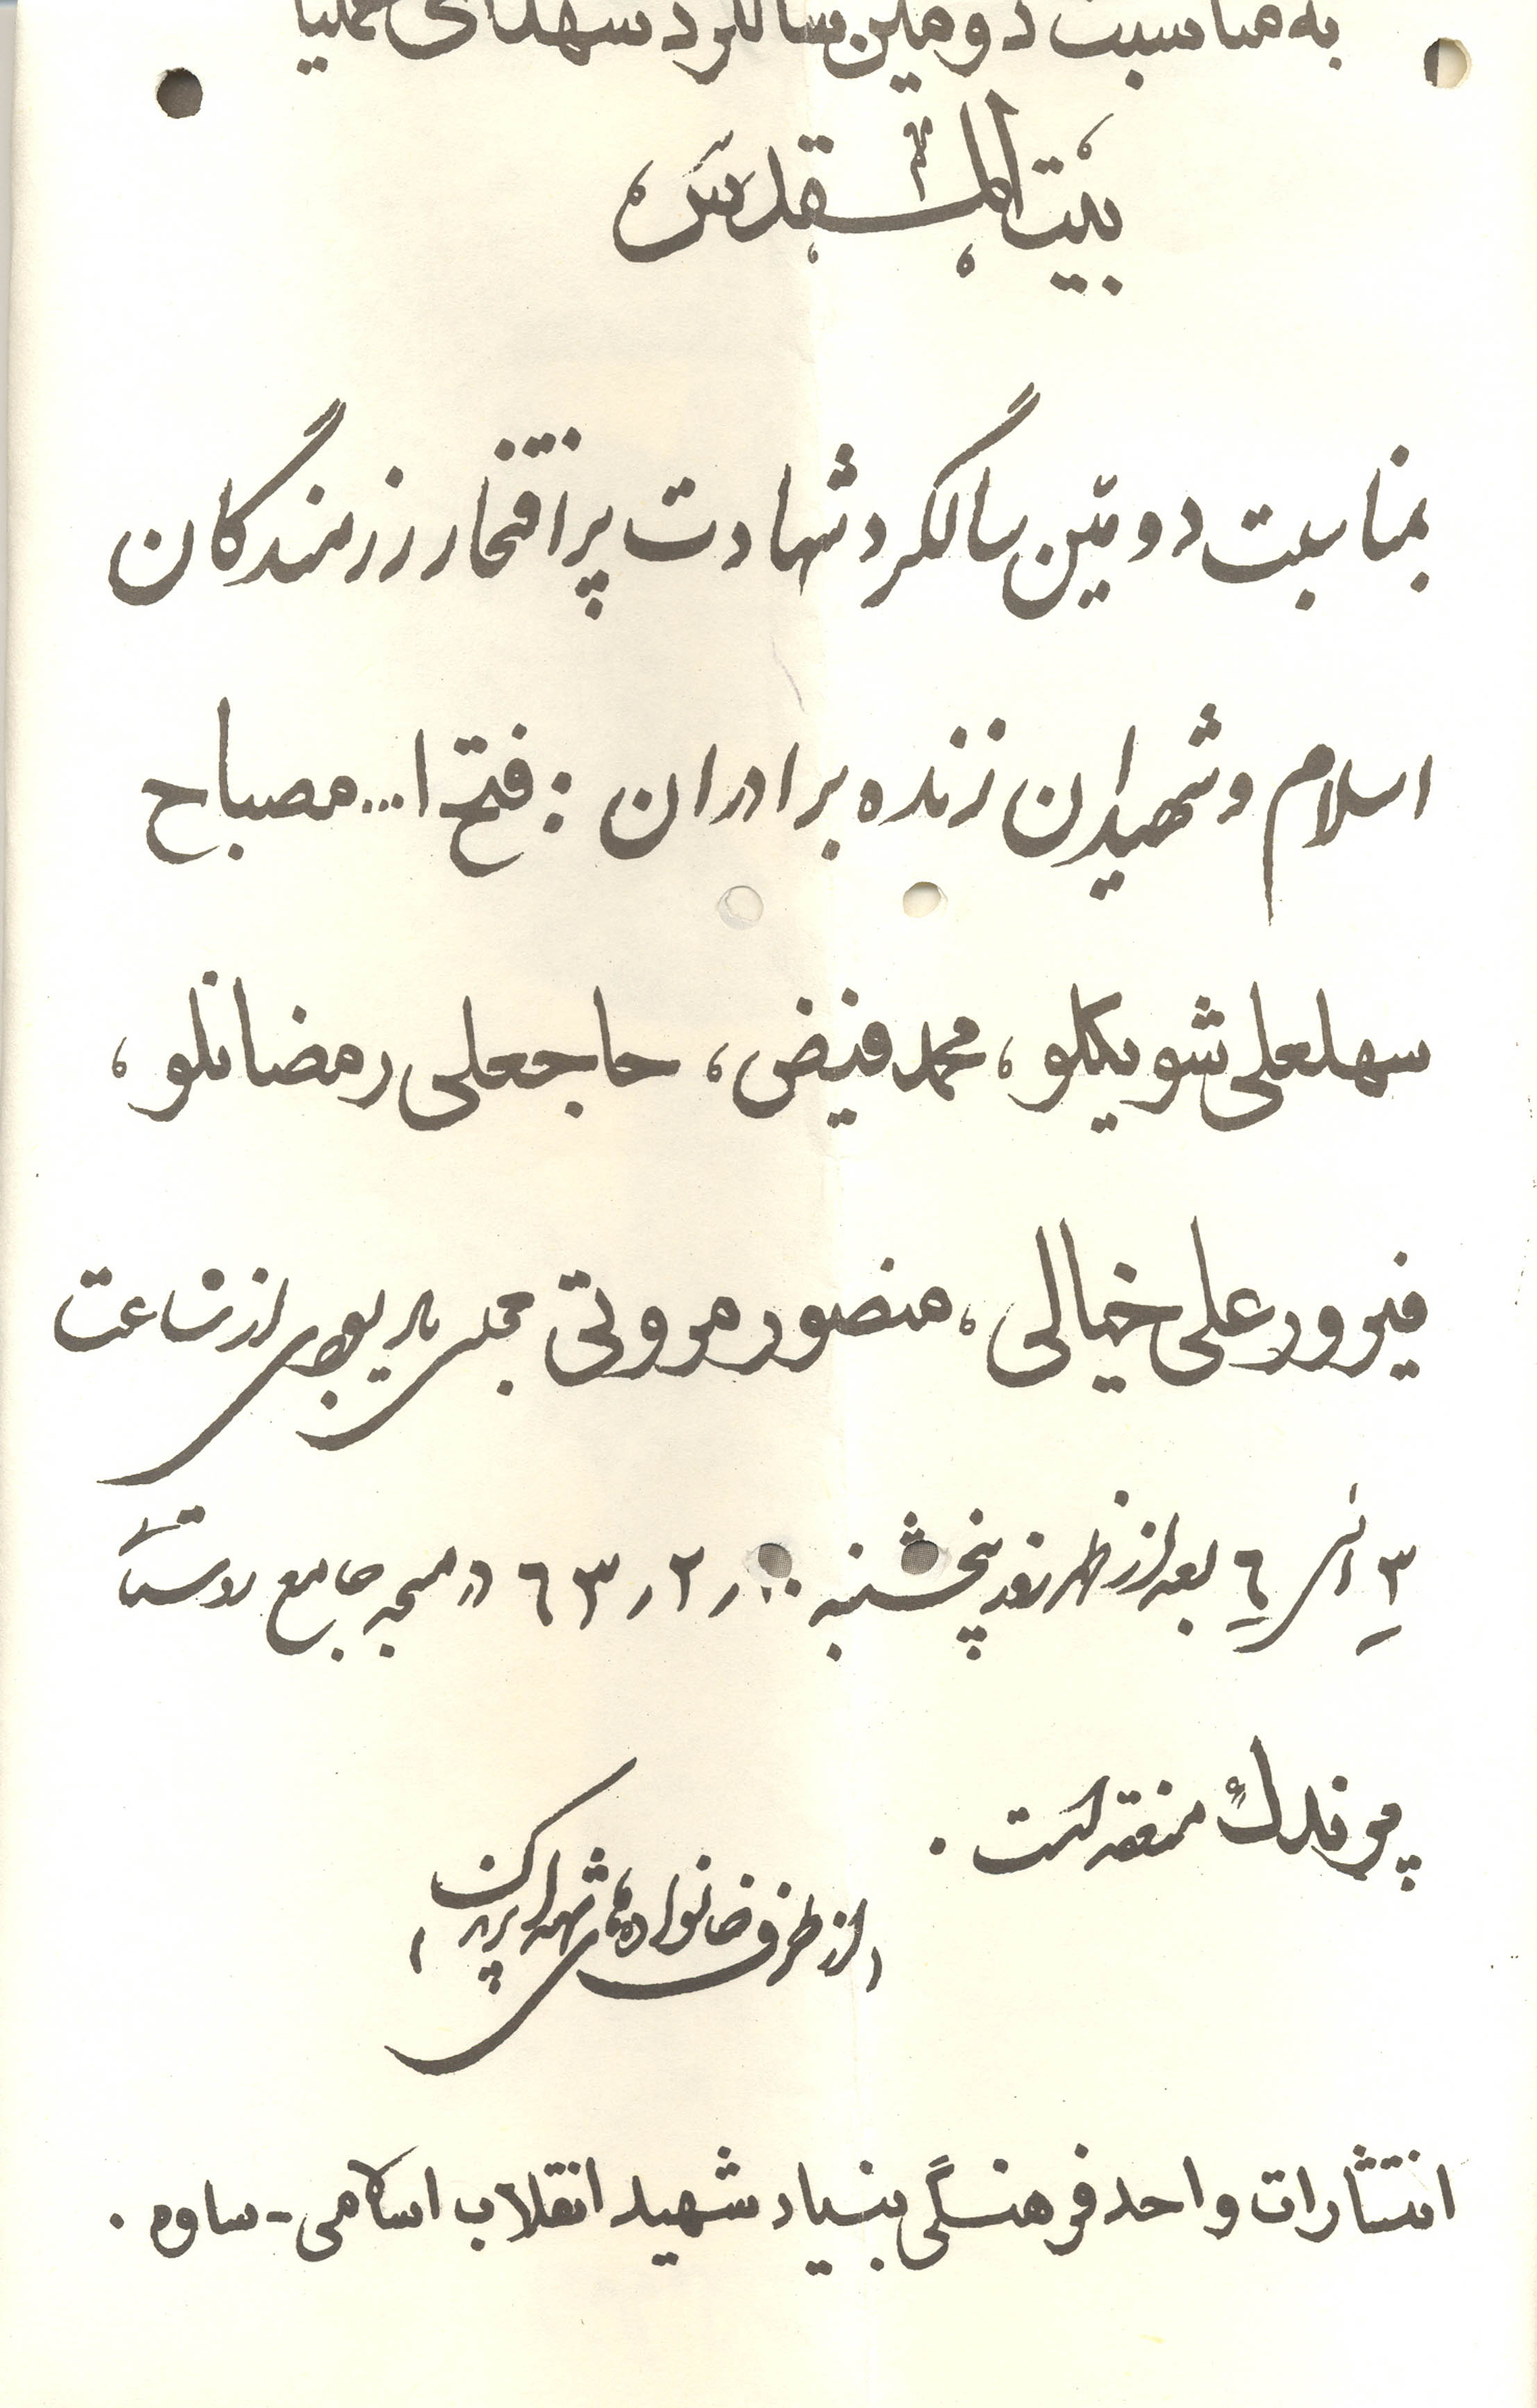 به مناسبت دومین سالگرد شهدای عملیا
بیت المقدس
بمناسبت دومّین سالگرد شهادت پرافتخار رزمندگان
اسلام و شهیدان زنده برادران : فتح ا... مصباح
سهلعلی شویکلو ، محمد فیض ، حاجعلی رمضانلو ،
فیروزعلی خیالی ، منصور مروتی مجلس یادبودی از ساعت
۳ الی ٦ بعد از ظهر روز پنجشنبه ر۲ر٦۳ در مسجد جامع روستای
پوندک منعقد است .
از طرف خانواده‌های شهدا
انتشارات واحد فرهنگی بنیاد شهید انقلاب اسلامی - ساوه .